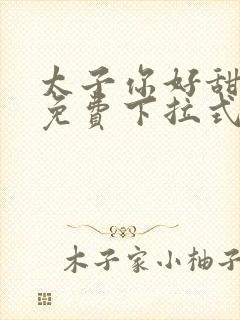 太子你好甜
免費下拉式
木子家小柚子